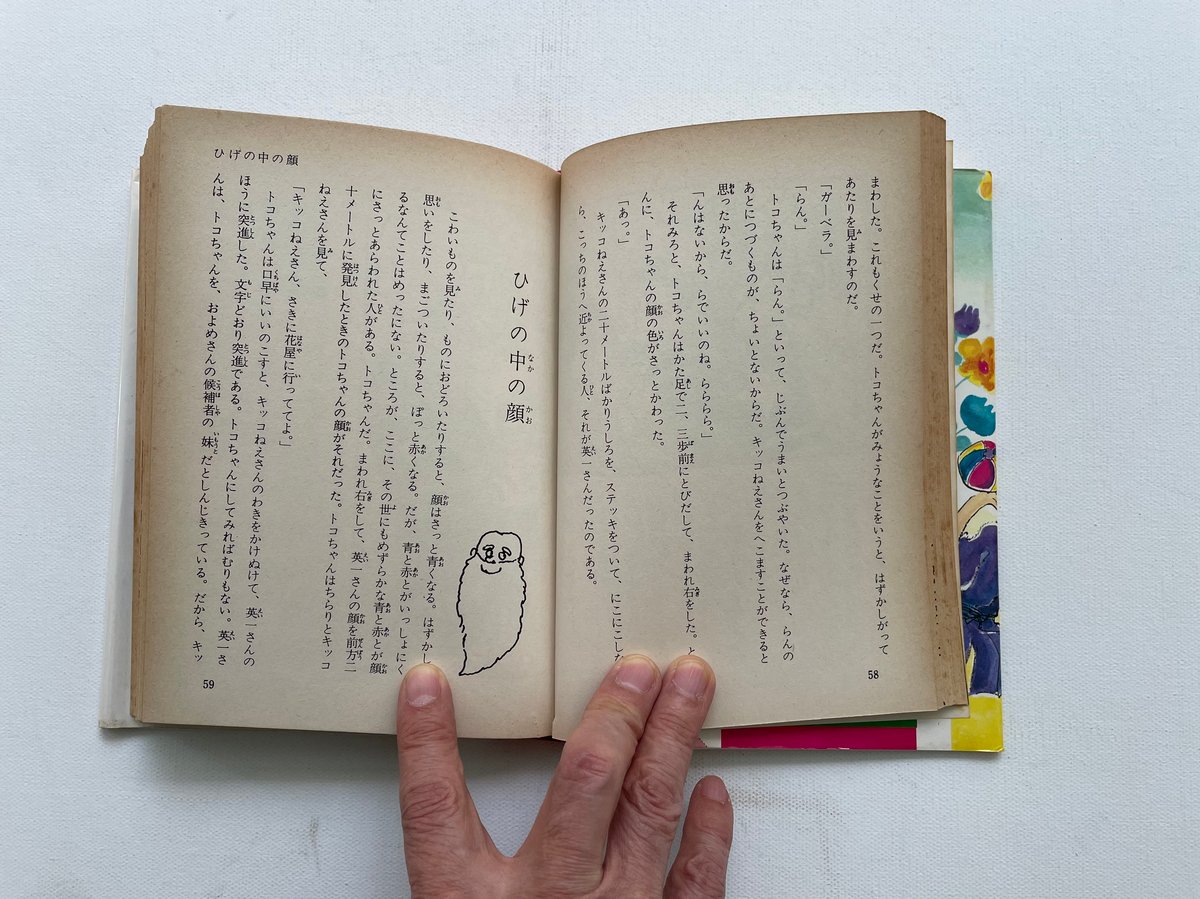 まわした。これもくせの一つだ。トコちゃんがみょうなことをいうと、はずかしがって
あたりを見まわすのだ。
「ガーベラ。」
「らん。」
トコちゃんは「らん。」といって、じぶんでうまいとつぶやいた。なぜなら、らんの
あとにつづくものが、ちょいとないからだ。キッコねえさんをへこますことができると
思ったからだ。
「んはないから、らでいいのね。らららら。」
それみろと、トコちゃんはかた足で二、三歩前にとびだして、まわれ右をした。と
んに、トコちゃんの顔の色がさっとかわった。
「あっ。」
キッコねえさんの二十メートルばかりうしろを、ステッキをついて、にこにこした
ら、こっちのほうへ近よってくる人、それが英一さんだったのである。
58
ひげの中の顔
こわいものを見たり、ものにおどろいたりすると、顔はさっと青くなる。はずかし
思いをしたり、まごついたりすると、ぽっと赤くなる。だが、青と赤とがいっしょにく
るなんてことはめったにない。ところが、ここに、その世にもめずらかな青と赤とが顔
にさっとあらわれた人がある。トコちゃんだ。まわれ右をして、英一さんの顔を前方二
十メートルに発見したときのトコちゃんの顔がそれだった。トコちゃんはちらりとキッコ
ねえさんを見て、
「キッコねえさん、さきに花屋に行っててよ。」
トコちゃんは口早にいいのこすと、キッコねえさんのわきをかけぬけて、英一さんの
ほうに突進した。文字どおり突進である。トコちゃんにしてみればむりもない。英一さ
んは、トコちゃんを、およめさんの候補者の妹だとしんじきっている。だから、キッ
ひげの中の顔
59